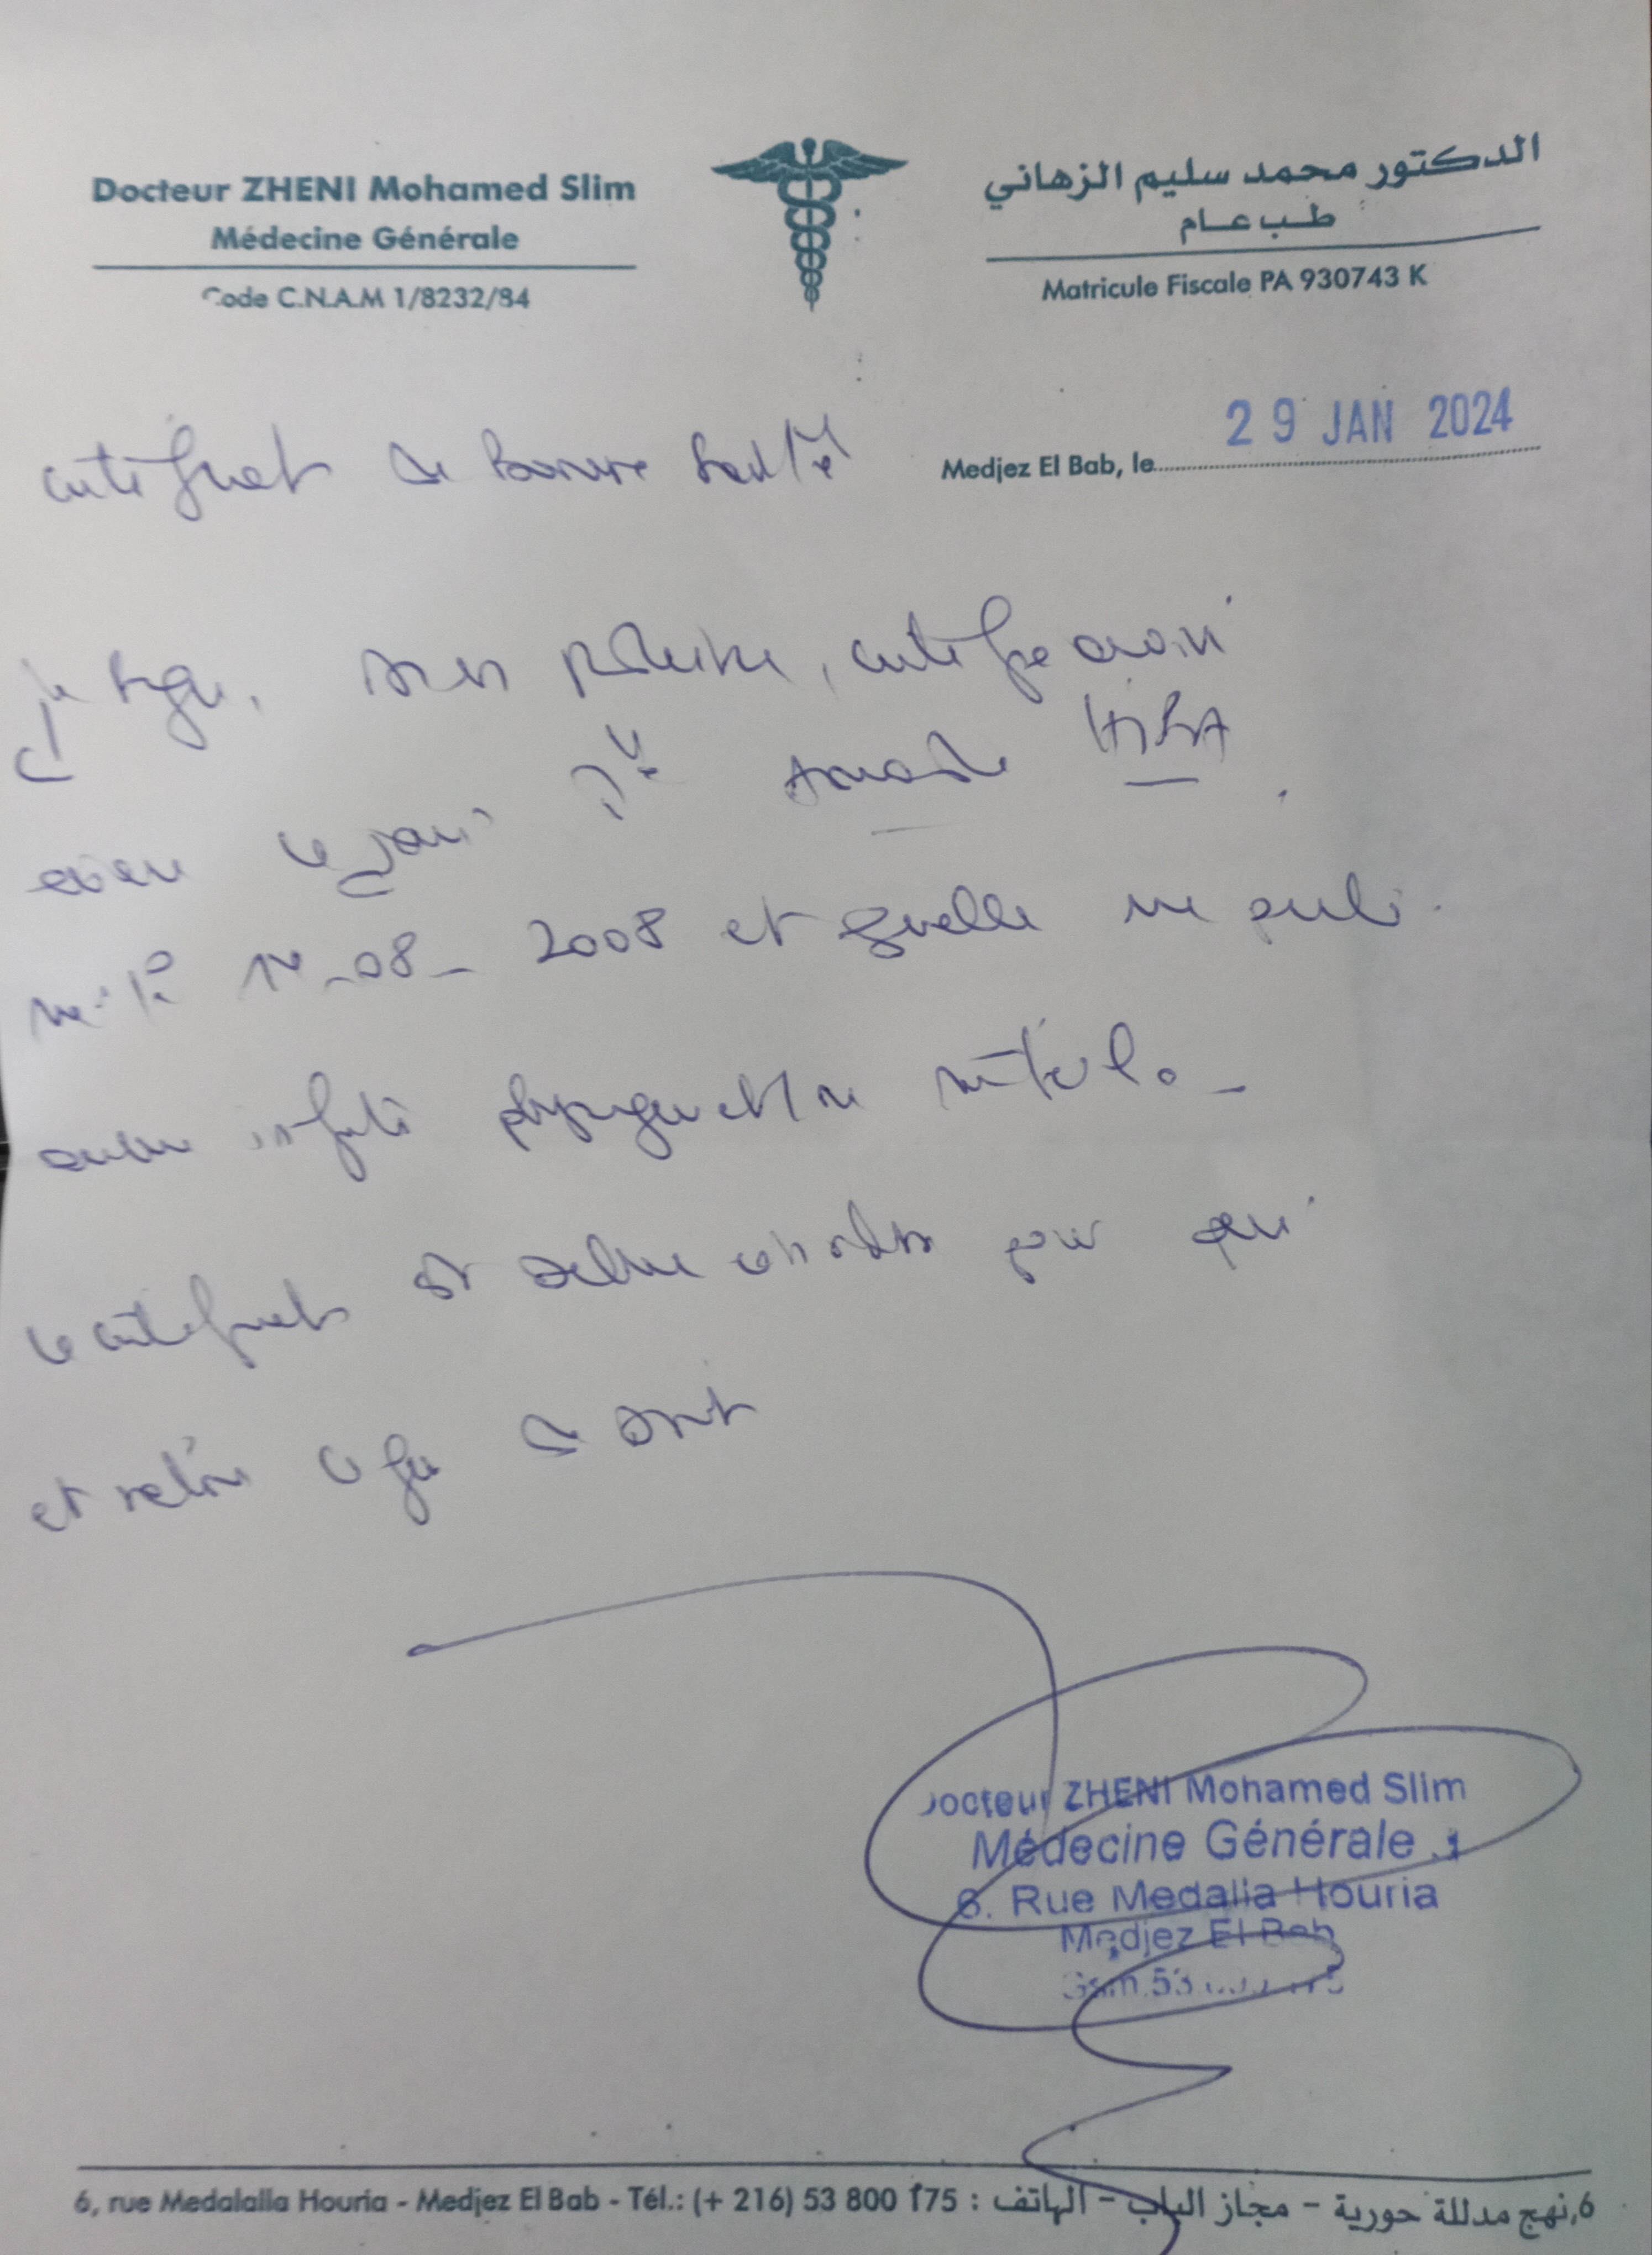 Docteur ZHENI Mohamed Slim
Médecine Générale
Code C.N.A.M 1/8232/84
الدكتور محمد سليم الزهاني
طب عام
Matricule Fiscale PA 930743 K
Medjez El Bab, le 29 JAN 2024
certificat de bonne santé
je soussigné, docteur en médecine, certifie avoir
examiné ce jour Mlle HIBA
née le -08-2008 et qu'elle ne
aucune infirmité physique et ni mentale.
ce certificat est délivré pour servir
et valoir ce que de droit
Docteur ZHENI Mohamed Slim
Médecine Générale
6. Rue Medallia Houria
Medjez El Bab
Gsm.53
6, rue Medalalla Houria - Medjez El Bab - Tél.: (+ 216) 53 800 175 : الهاتف - مجاز الباب - نهج مدللة حورية,6